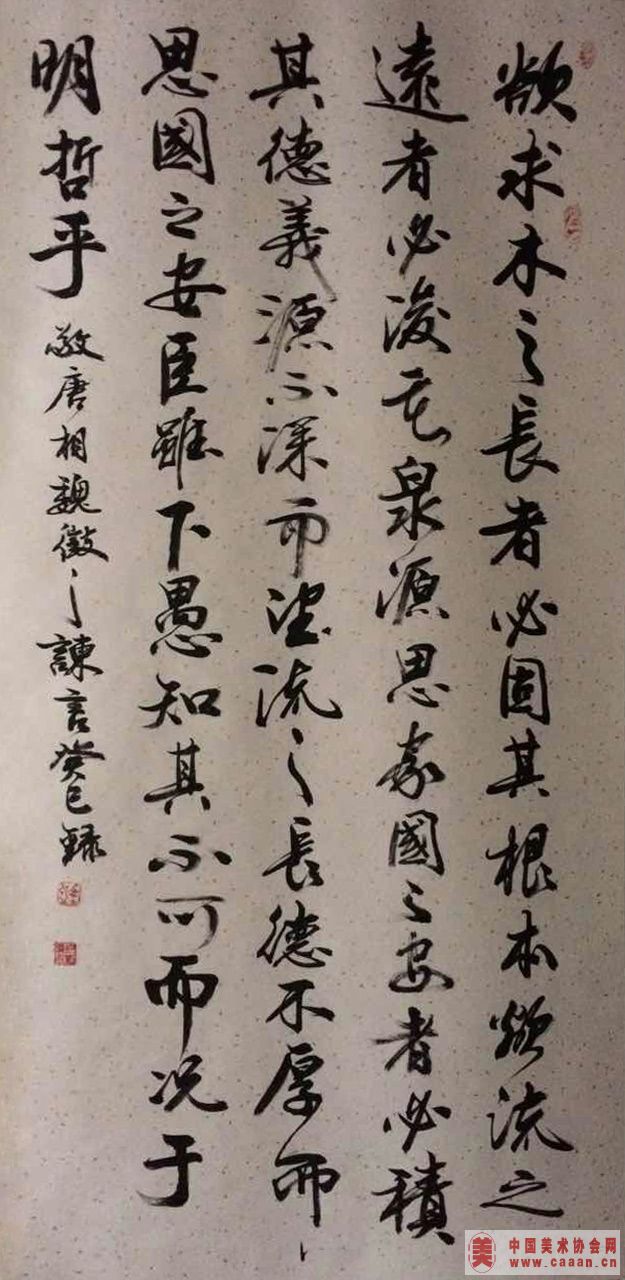 欲求木之長者必固其根本欲流之
遠者必浚其泉源思家國之安者必積
其德義源不深而望流之長德不厚而
思國之安臣雖下愚知其不可而況于
明哲乎
敬唐相魏徵之諫言癸巳錄
美
中国美术协会网
www.caaan.cn